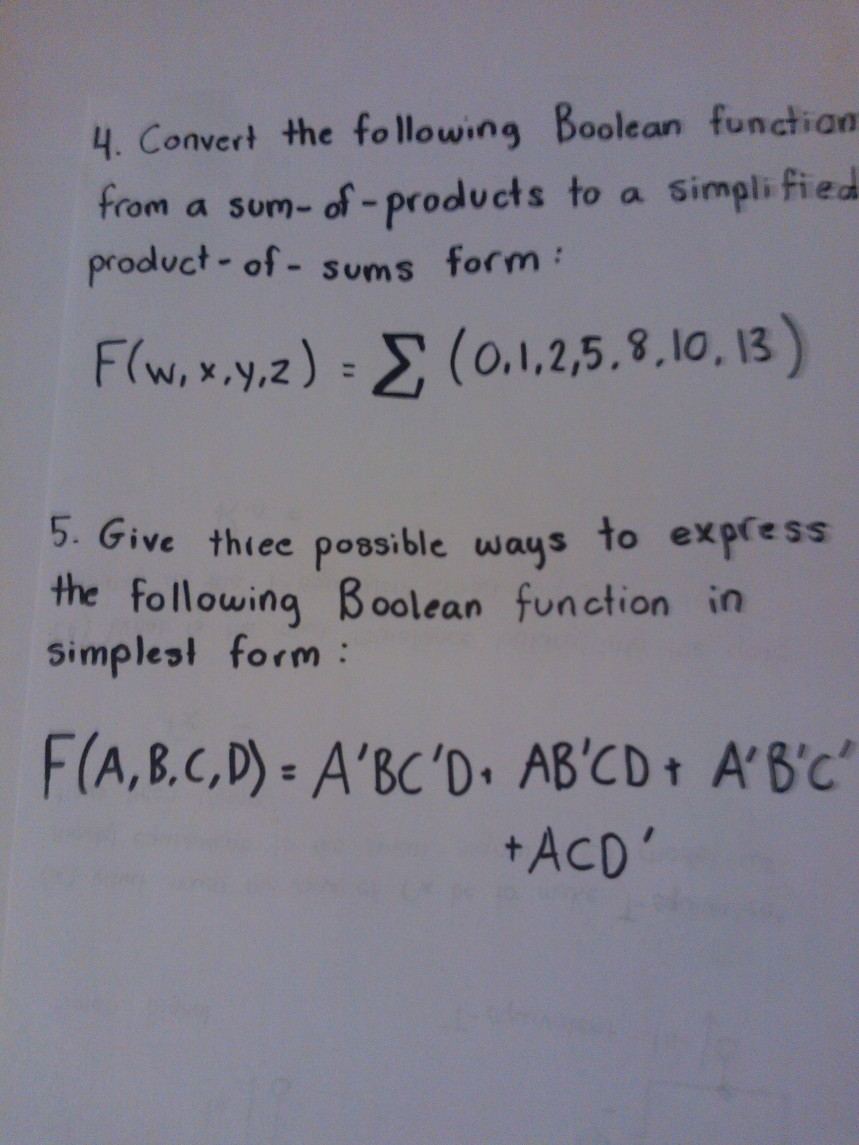 4. Convert the following Boolean function
from a sum-of-products to a simplified
product-of-sums form:
F(w,x,y,z) = Σ (0,1,2,5,8,10,13)
5. Give three possible ways to express
the following Boolean function in
simplest form:
F(A,B,C,D) = A'BC'D + AB'CD + A'B'C'
+ACD'